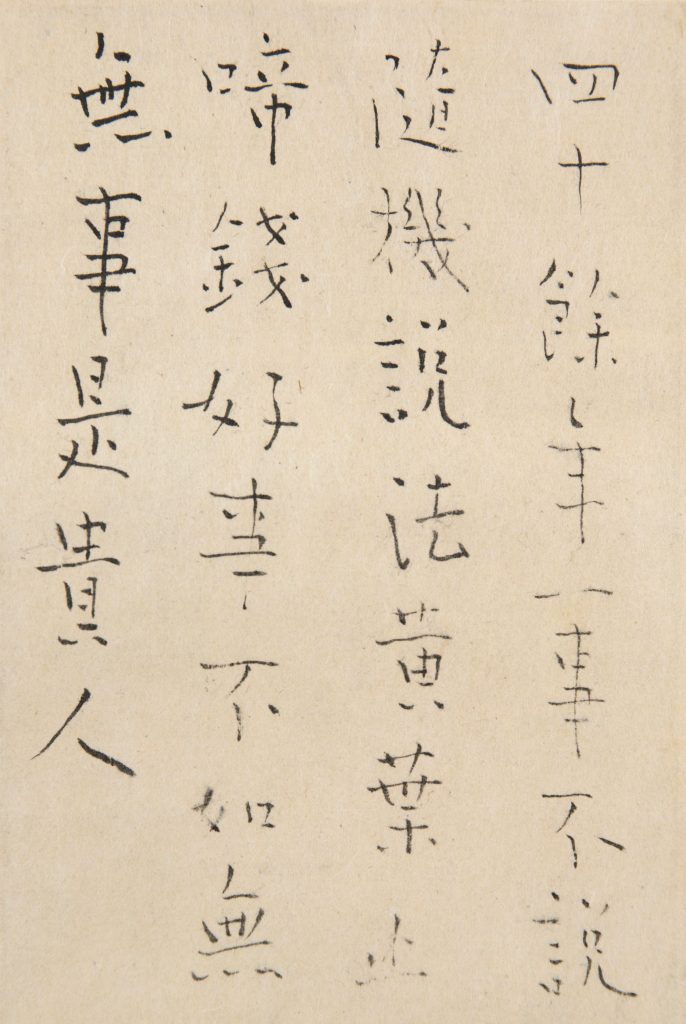 四十餘年一事不說
隨機說法黃葉止
啼錢好事不如無
無事是貴人